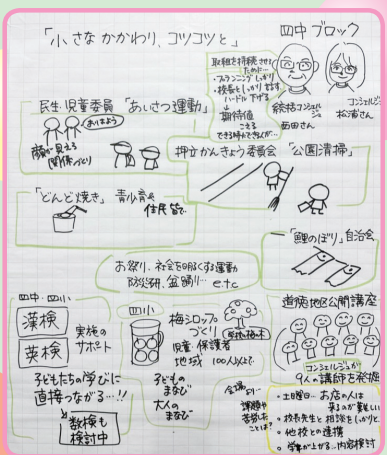 「小さな かかわり、コツコツと」
四中ブロック
取組を持続させる
ために…
・プランニングしっかり
・校長としっかり話す
ハードル下げる
期待値
こえる
統括コンシェルジュ
西田さん
コンシェルジュ
松浦さん
民生・児童委員「あいさつ運動」
おはよう
顔が見える
関係づくり
押立かんきょう委員会「公園清掃」
「どんど焼き」
住民皆で…
「鯉のぼり」自治会
お祭り、社会を明るくする運動
防災研、盆踊り… e.t.c
四中・四小
漢検
英検
実施の
サポート
子どもたちの学びに
直接つながる…!!
数検も
検討中
四小
梅シロップ
づくり
学校の梅の木
児童・保護者
地域 100人以上で…
子どもの
まなび
大人の
まなび
会場より…
課題や
苦労した
ことは?
道徳地区公開講座
コンシェルジュが
9人の講師を発掘
・土曜日… お店の人は
来るのが難しい
・校長先生と相談をしっかりと
・他校との連携
・学年が上がる…内容検討